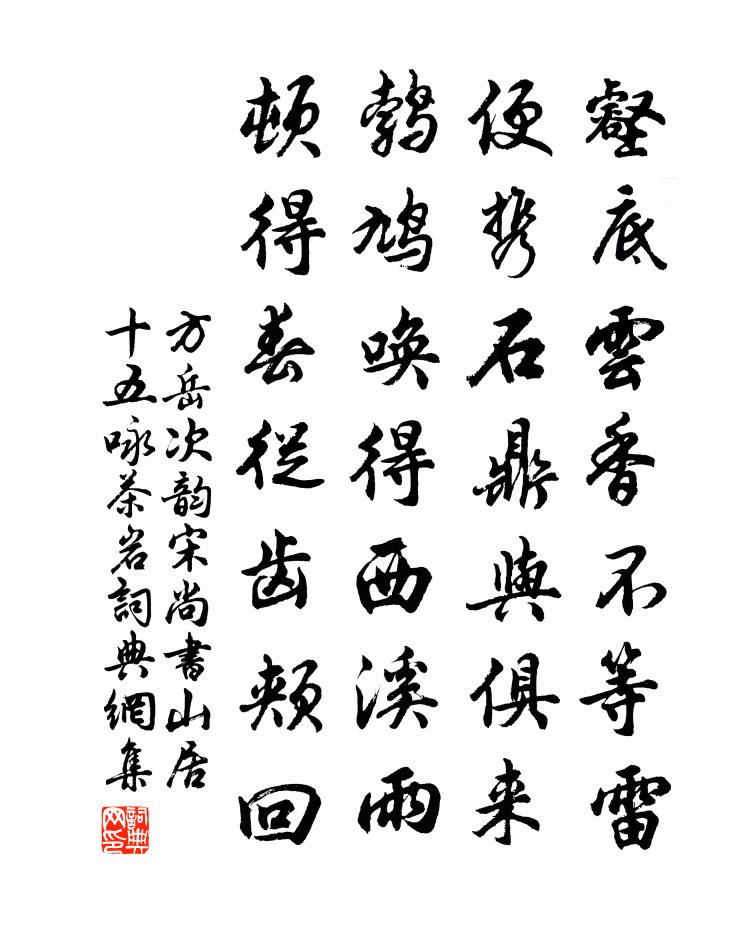 壑底雲香不等雷
便携石鼎與俱来
鹁鸠唤得西溪雨
顿得春從齿颊回
方岳次韵宋尚書山居
十五咏茶岩詞典網集
詞典网印